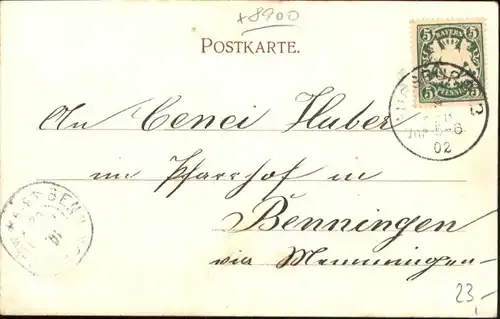 +8900
POSTKARTE.
5 BAYERN 5
5 PFENNIG 5
An Cenci Huber
im Pfarrhof in
Benningen
via Memmingen
5-6
02
23.-